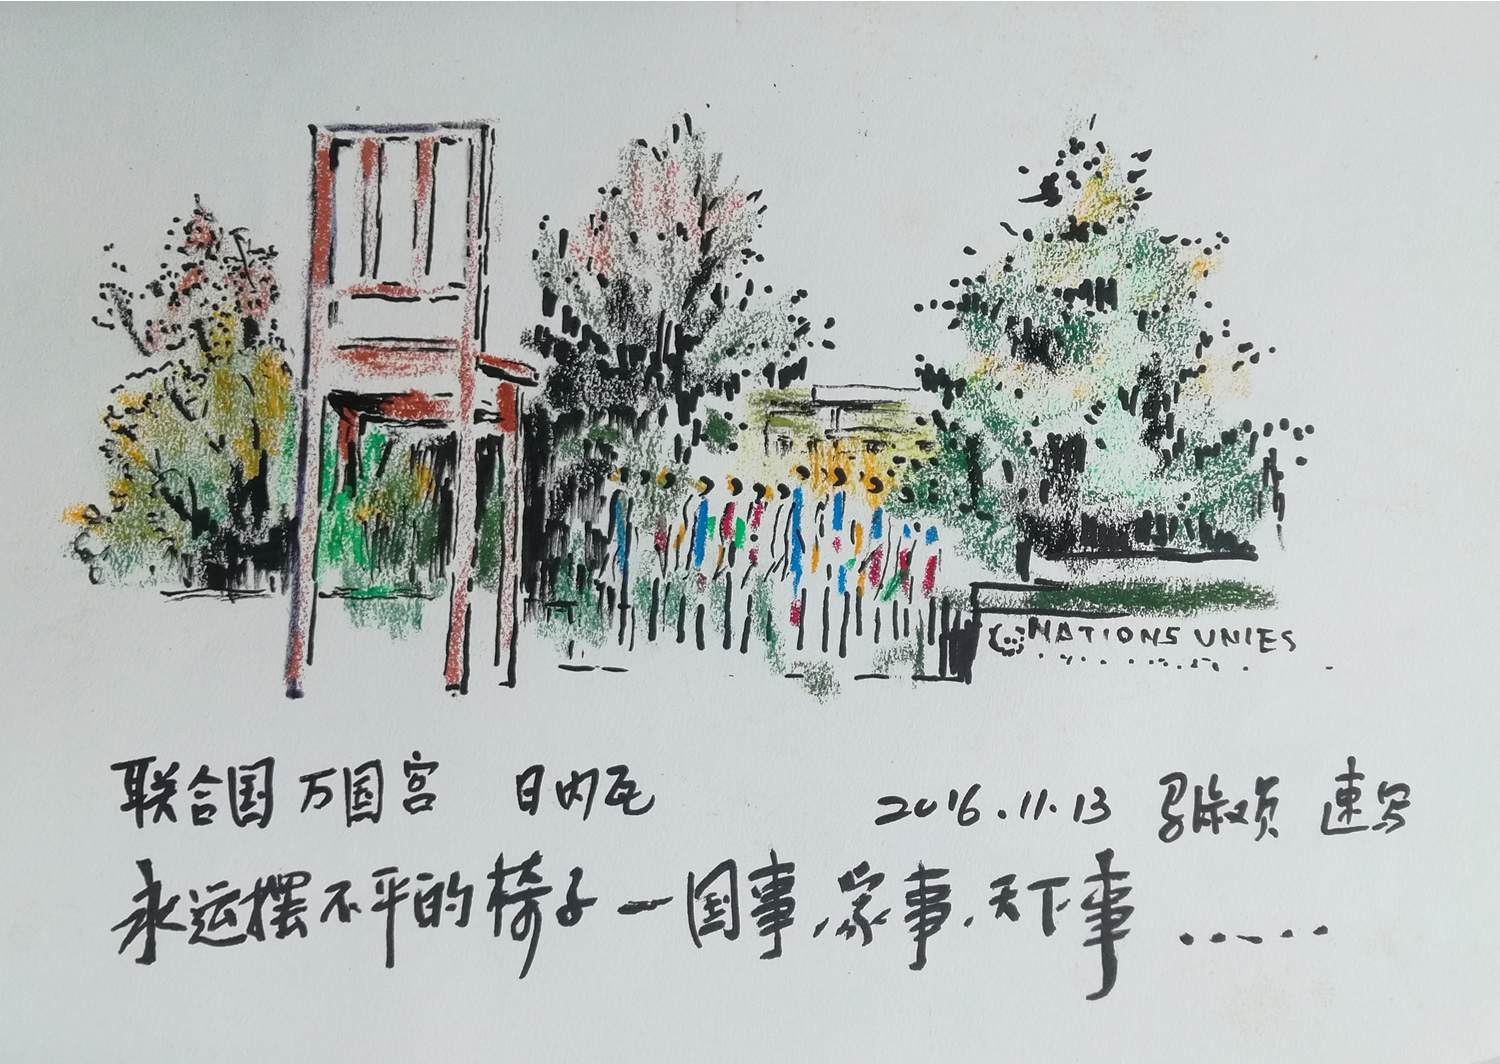 NATIONS UNIES
联合国 万国宫 日内瓦 2016.11.13 淑贞 速写
永远摆不平的椅子—国事,家事,天下事……